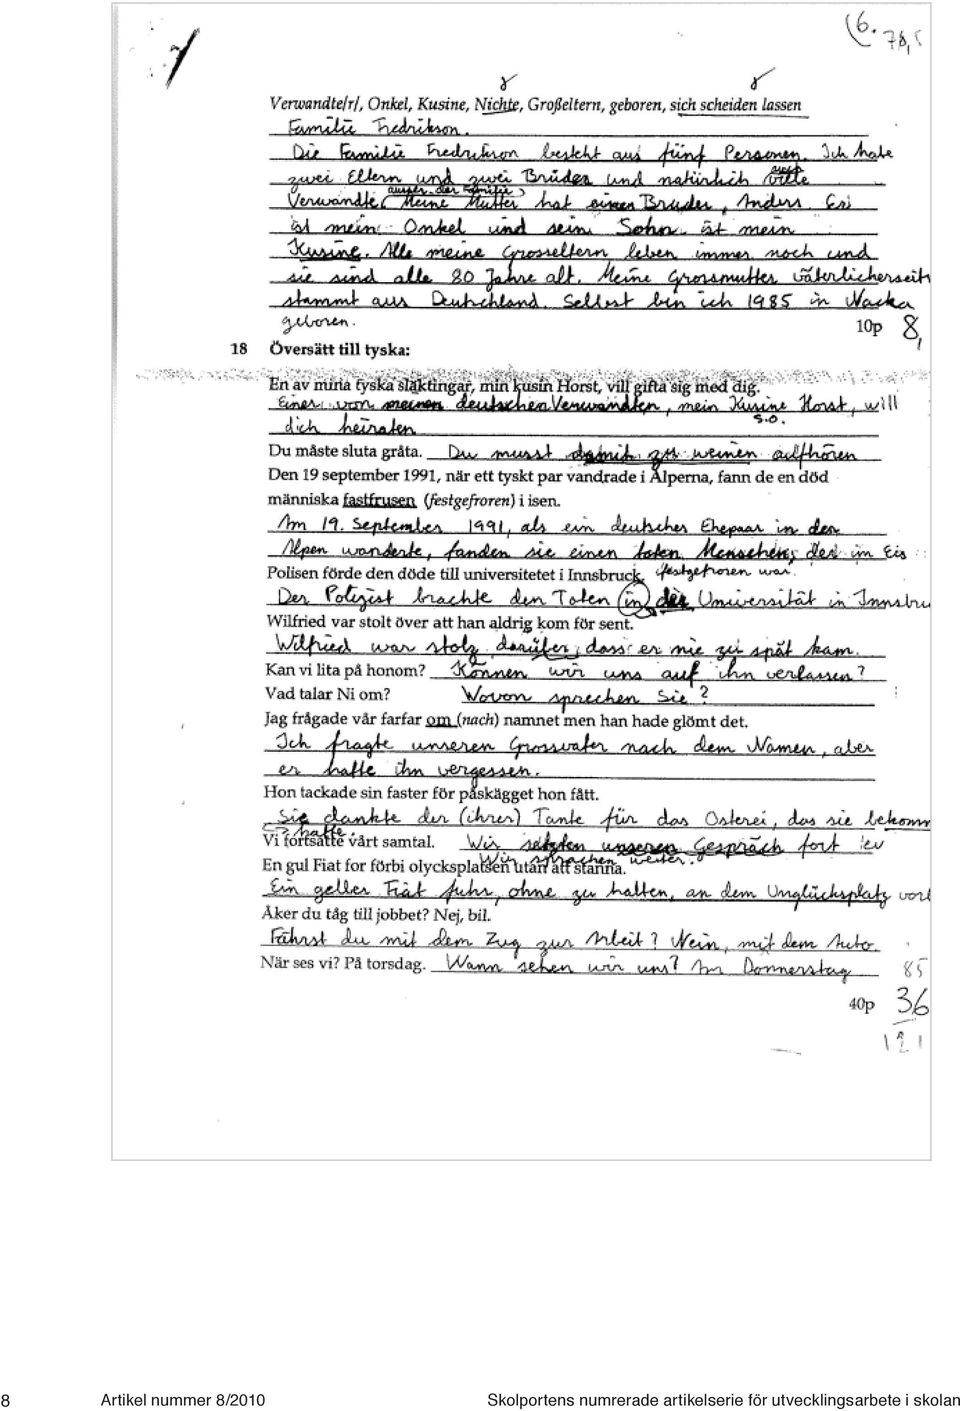 (6. 78,5
Verwandte/r/, Onkel, Kusine, Nichte, Großeltern, geboren, sich scheiden lassen
Familie Fredrikson.
Die Familie Fredrikson besteht aus fünf Personen. Ich habe
zwei Eltern und zwei Brüder und natürlich
außer der Familie
Verwandte. Meine Mutter hat einen Bruder, Anders. Er
ist mein Onkel und sein Sohn ist mein
Kusine. Alle meine Grosseltern leben immer noch und
sie sind alle 80 Jahre alt. Meine Grossmutter väterlicherseits
stammt aus Deutschland. Selbst bin ich 1985 in Nacka
geboren.
10p 8,
18 Översätt till tyska:
En av mina tyska släktingar, min kusin Horst, vill gifta sig med dig.
Einer von meinen deutschen Verwandten, mein Kusine Horst, will
s.o.
dich heiraten
Du måste sluta gråta. Du musst damit zu weinen aufhören
Den 19 september 1991, när ett tyskt par vandrade i Alperna, fann de en död
människa fastfrusen (festgefroren) i isen.
Am 19. September 1991, als ein deutscher Ehepaar in den
Alpen wanderte, fanden sie einen toten Menschen, der im Eis
festgefrosen war.
Polisen förde den döde till universitetet i Innsbruck.
Der Polizist brachte den Toten in der Universität in Innsbru
Wilfried var stolt över att han aldrig kom för sent.
Wilfried war stolz darüber, dass er nie zu spät kam.
Kan vi lita på honom? Können wir uns auf ihn verlassen?
Vad talar Ni om? Wovon sprechen Sie?
Jag frågade vår farfar om (nach) namnet men han hade glömt det.
Ich fragte unseren Grossvater nach dem Namen, aber
er hatte ihn vergessen.
Hon tackade sin faster för påskägget hon fått.
Sie dankte der (ihrer) Tante für das Osterei, das sie bekomm
hatte.
Vi fortsatte vårt samtal. Wir setzten unseren Gespräch fort
Wir sprachen weiter.
En gul Fiat for förbi olycksplatsen utan att stanna.
Ein gelber Fiat fuhr, ohne zu halten, an dem Unglücksplatz vor
Åker du tåg till jobbet? Nej, bil.
Fährst du mit dem Zug zur Arbeit? Nein, mit dem Auto.
När ses vi? På torsdag. Wann sehen wir uns? Am Donnerstag
85
40p 36
121
8 Artikel nummer 8/2010 Skolportens numrerade artikelserie för utvecklingsarbete i skolan